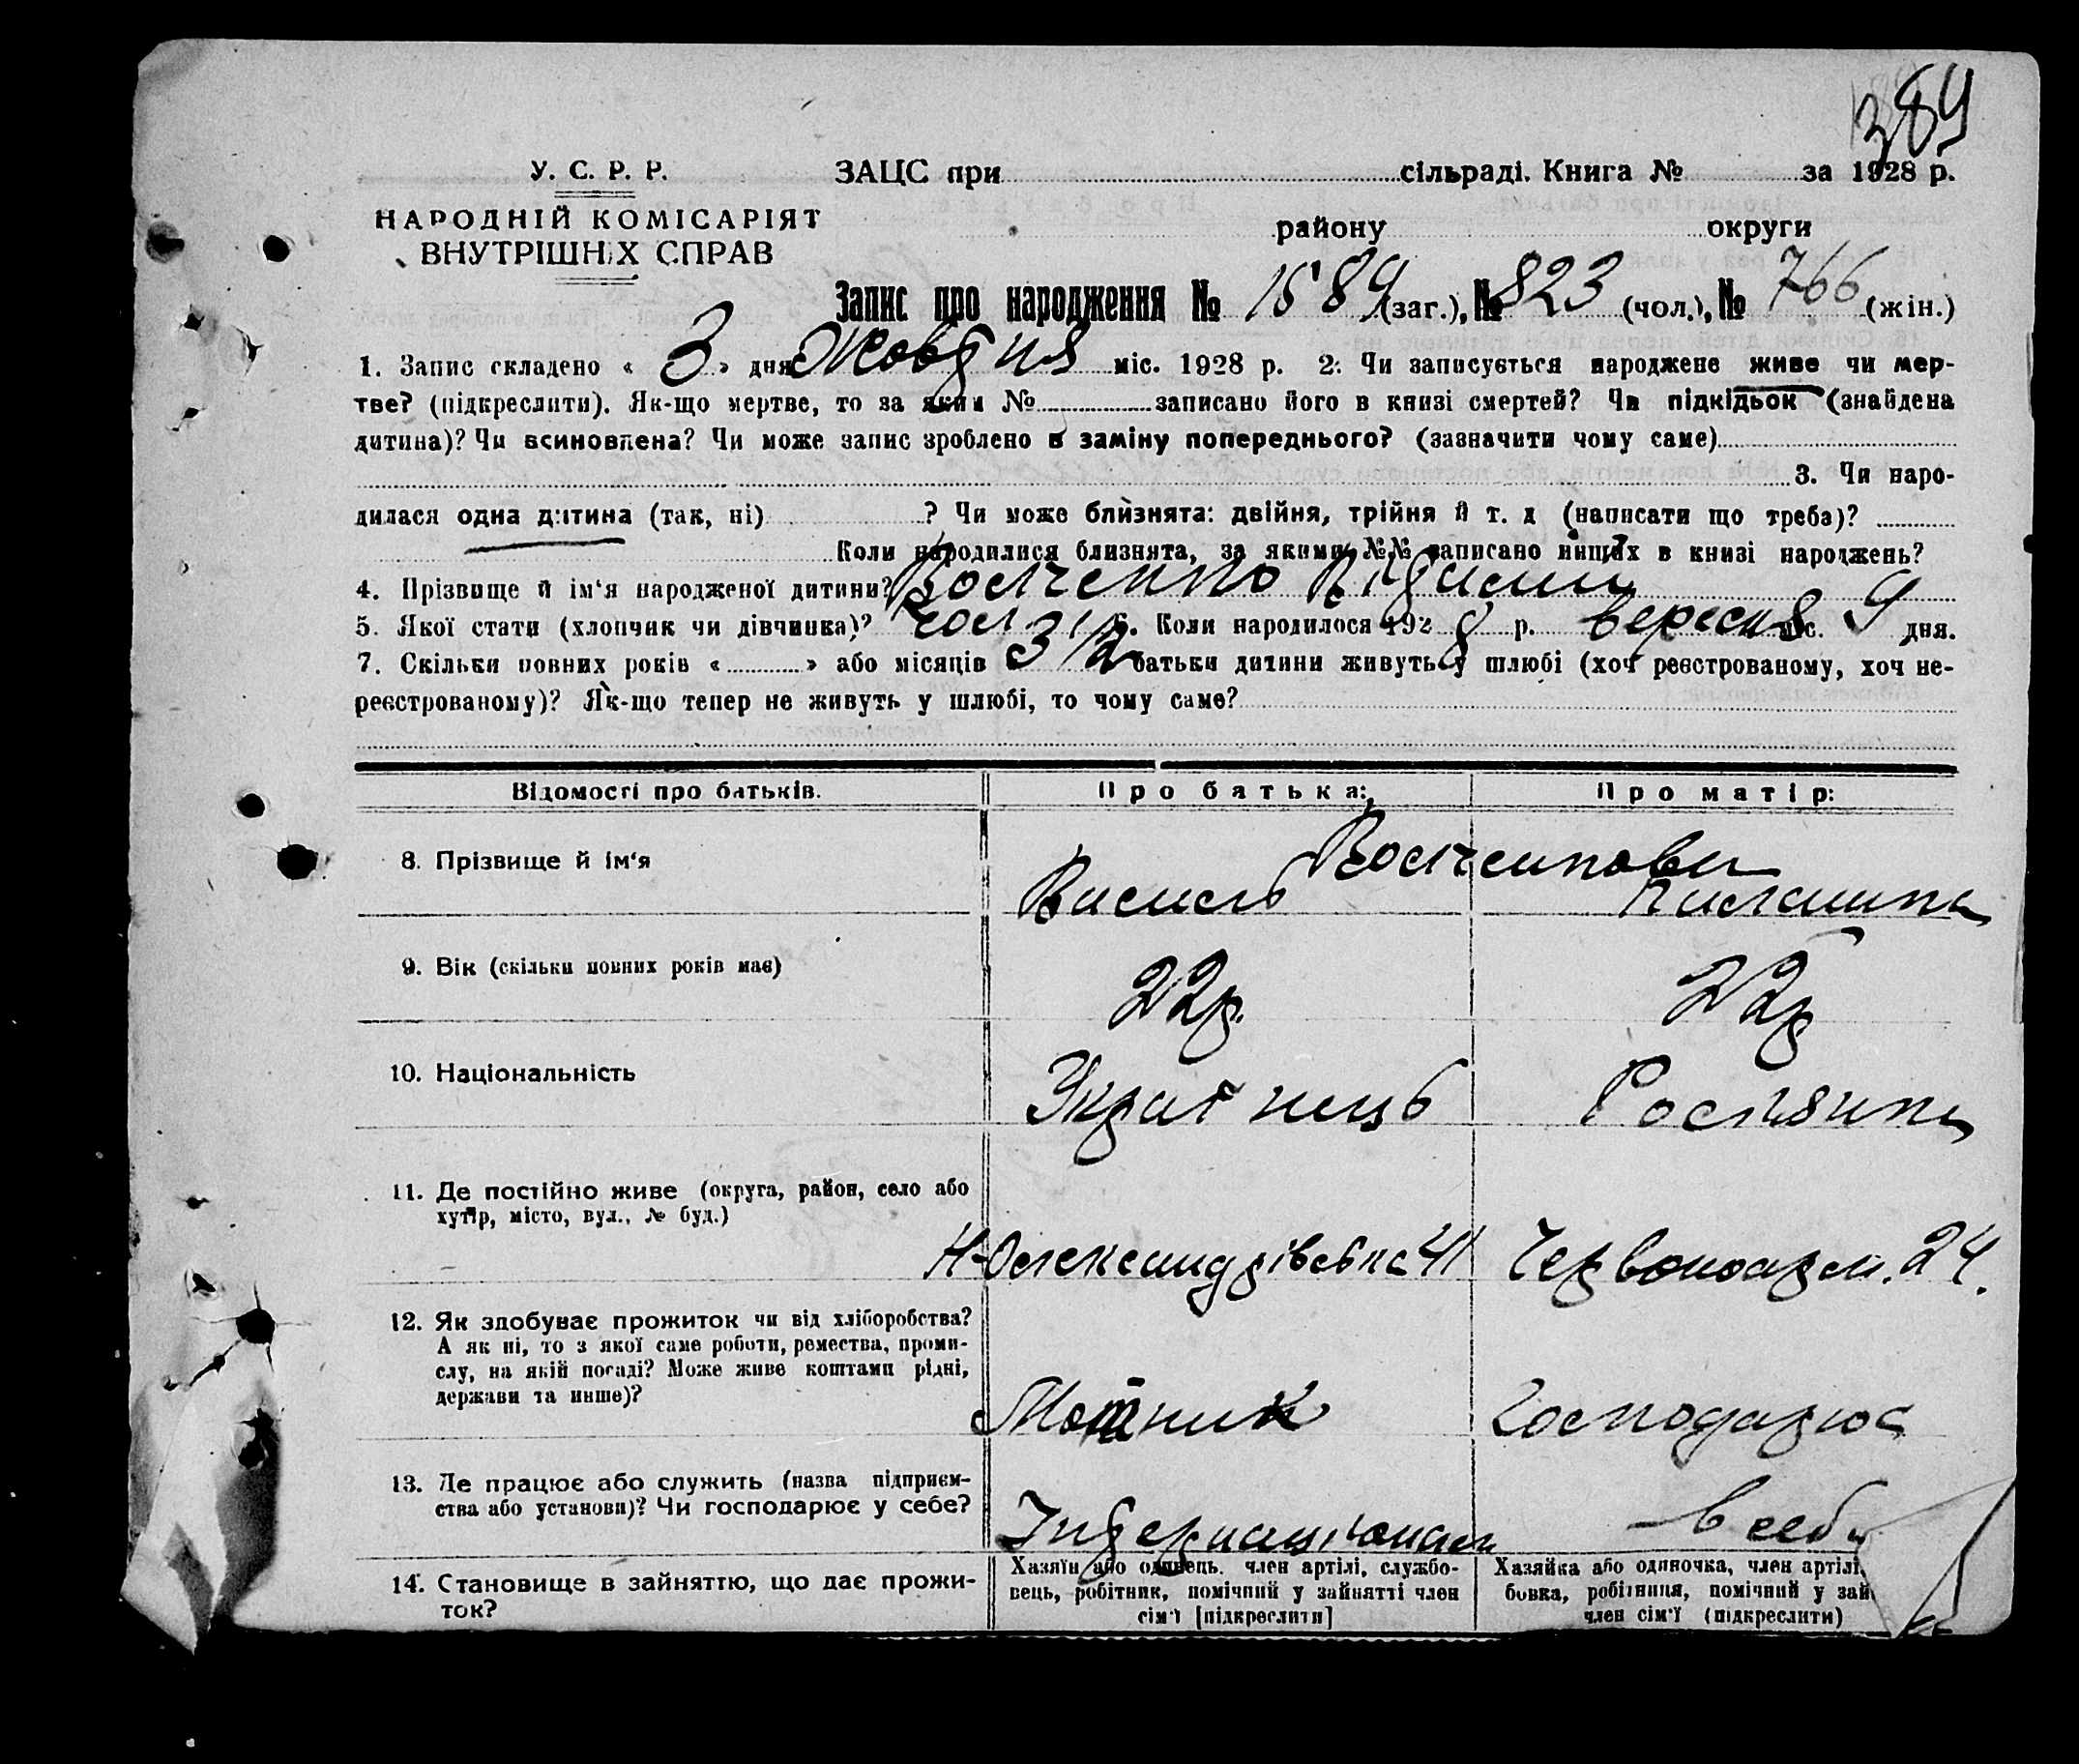 389
У. С. Р. Р.
ЗАЦС при сільраді. Книга № за 1928 р.
НАРОДНІЙ КОМІСАРІЯТ
ВНУТРІШНІХ СПРАВ
району округи
Запис про народження № 1589 (заг.), № 823 (чол.), № 766 (жін.)
1. Запис складено « 3 » дня Жовтня міс. 1928 р. 2. Чи записується народжене живе чи мер-
тве? (підкреслити). Як-що мертве, то за яким № записано його в книзі смертей? Чи підкідьок (знайдена
дитина)? Чи всиновлена? Чи може запис зроблено в заміну попереднього? (зазначити чому саме)
3. Чи наро-
дилася одна дитина (так, ні) ? Чи може близнята: двійня, трійня й т. д (написати що треба)?
Коли народилися близнята, за якими №№ записано инших в книзі народжень?
4. Прізвище й ім‘я народженої дитини? Волченко
5. Якої стати (хлопчик чи дівчинка)? чол 6. Коли народилося 1928 р. вересня міс. 9 дня.
7. Скільки повних років « » або місяців 3 1/2 батьки дитини живуть у шлюбі (хоч реєстрованому, хоч не-
реєстрованому)? Як-що тепер не живуть у шлюбі, то чому саме?
Відомості про батьків. Про батька: Про матір:
8. Прізвище й ім‘я Волченкови
Василь
9. Вік (скільки повних років має) 22р. 22р
10. Національність Українець Росіянка
11. Де постійно живе (округа, район, село або
хутір, місто, вул., № буд.)
Н-Олександрівська 41 Червоноарм. 24.
12. Як здобуває прожиток чи від хліборобства?
А як ні, то з якої саме роботи, ремества, проми-
слу, на якій посаді? Може живе коштами рідні,
держави та инше)?
господарює
13. Де працює або служить (назва підприєм-
ства або установи)? Чи господарює у себе?
в себе
14. Становище в зайняттю, що дає прожи-
ток?
Хазяїн або одинець, член артілі, службо-
вець, робітник, помічний у зайнятті член
сім‘ї [підкреслити]
Хазяйка або одиночка, член артілі,
бовка, робітниця, помічний у зай
член сім‘ї (підкреслити)